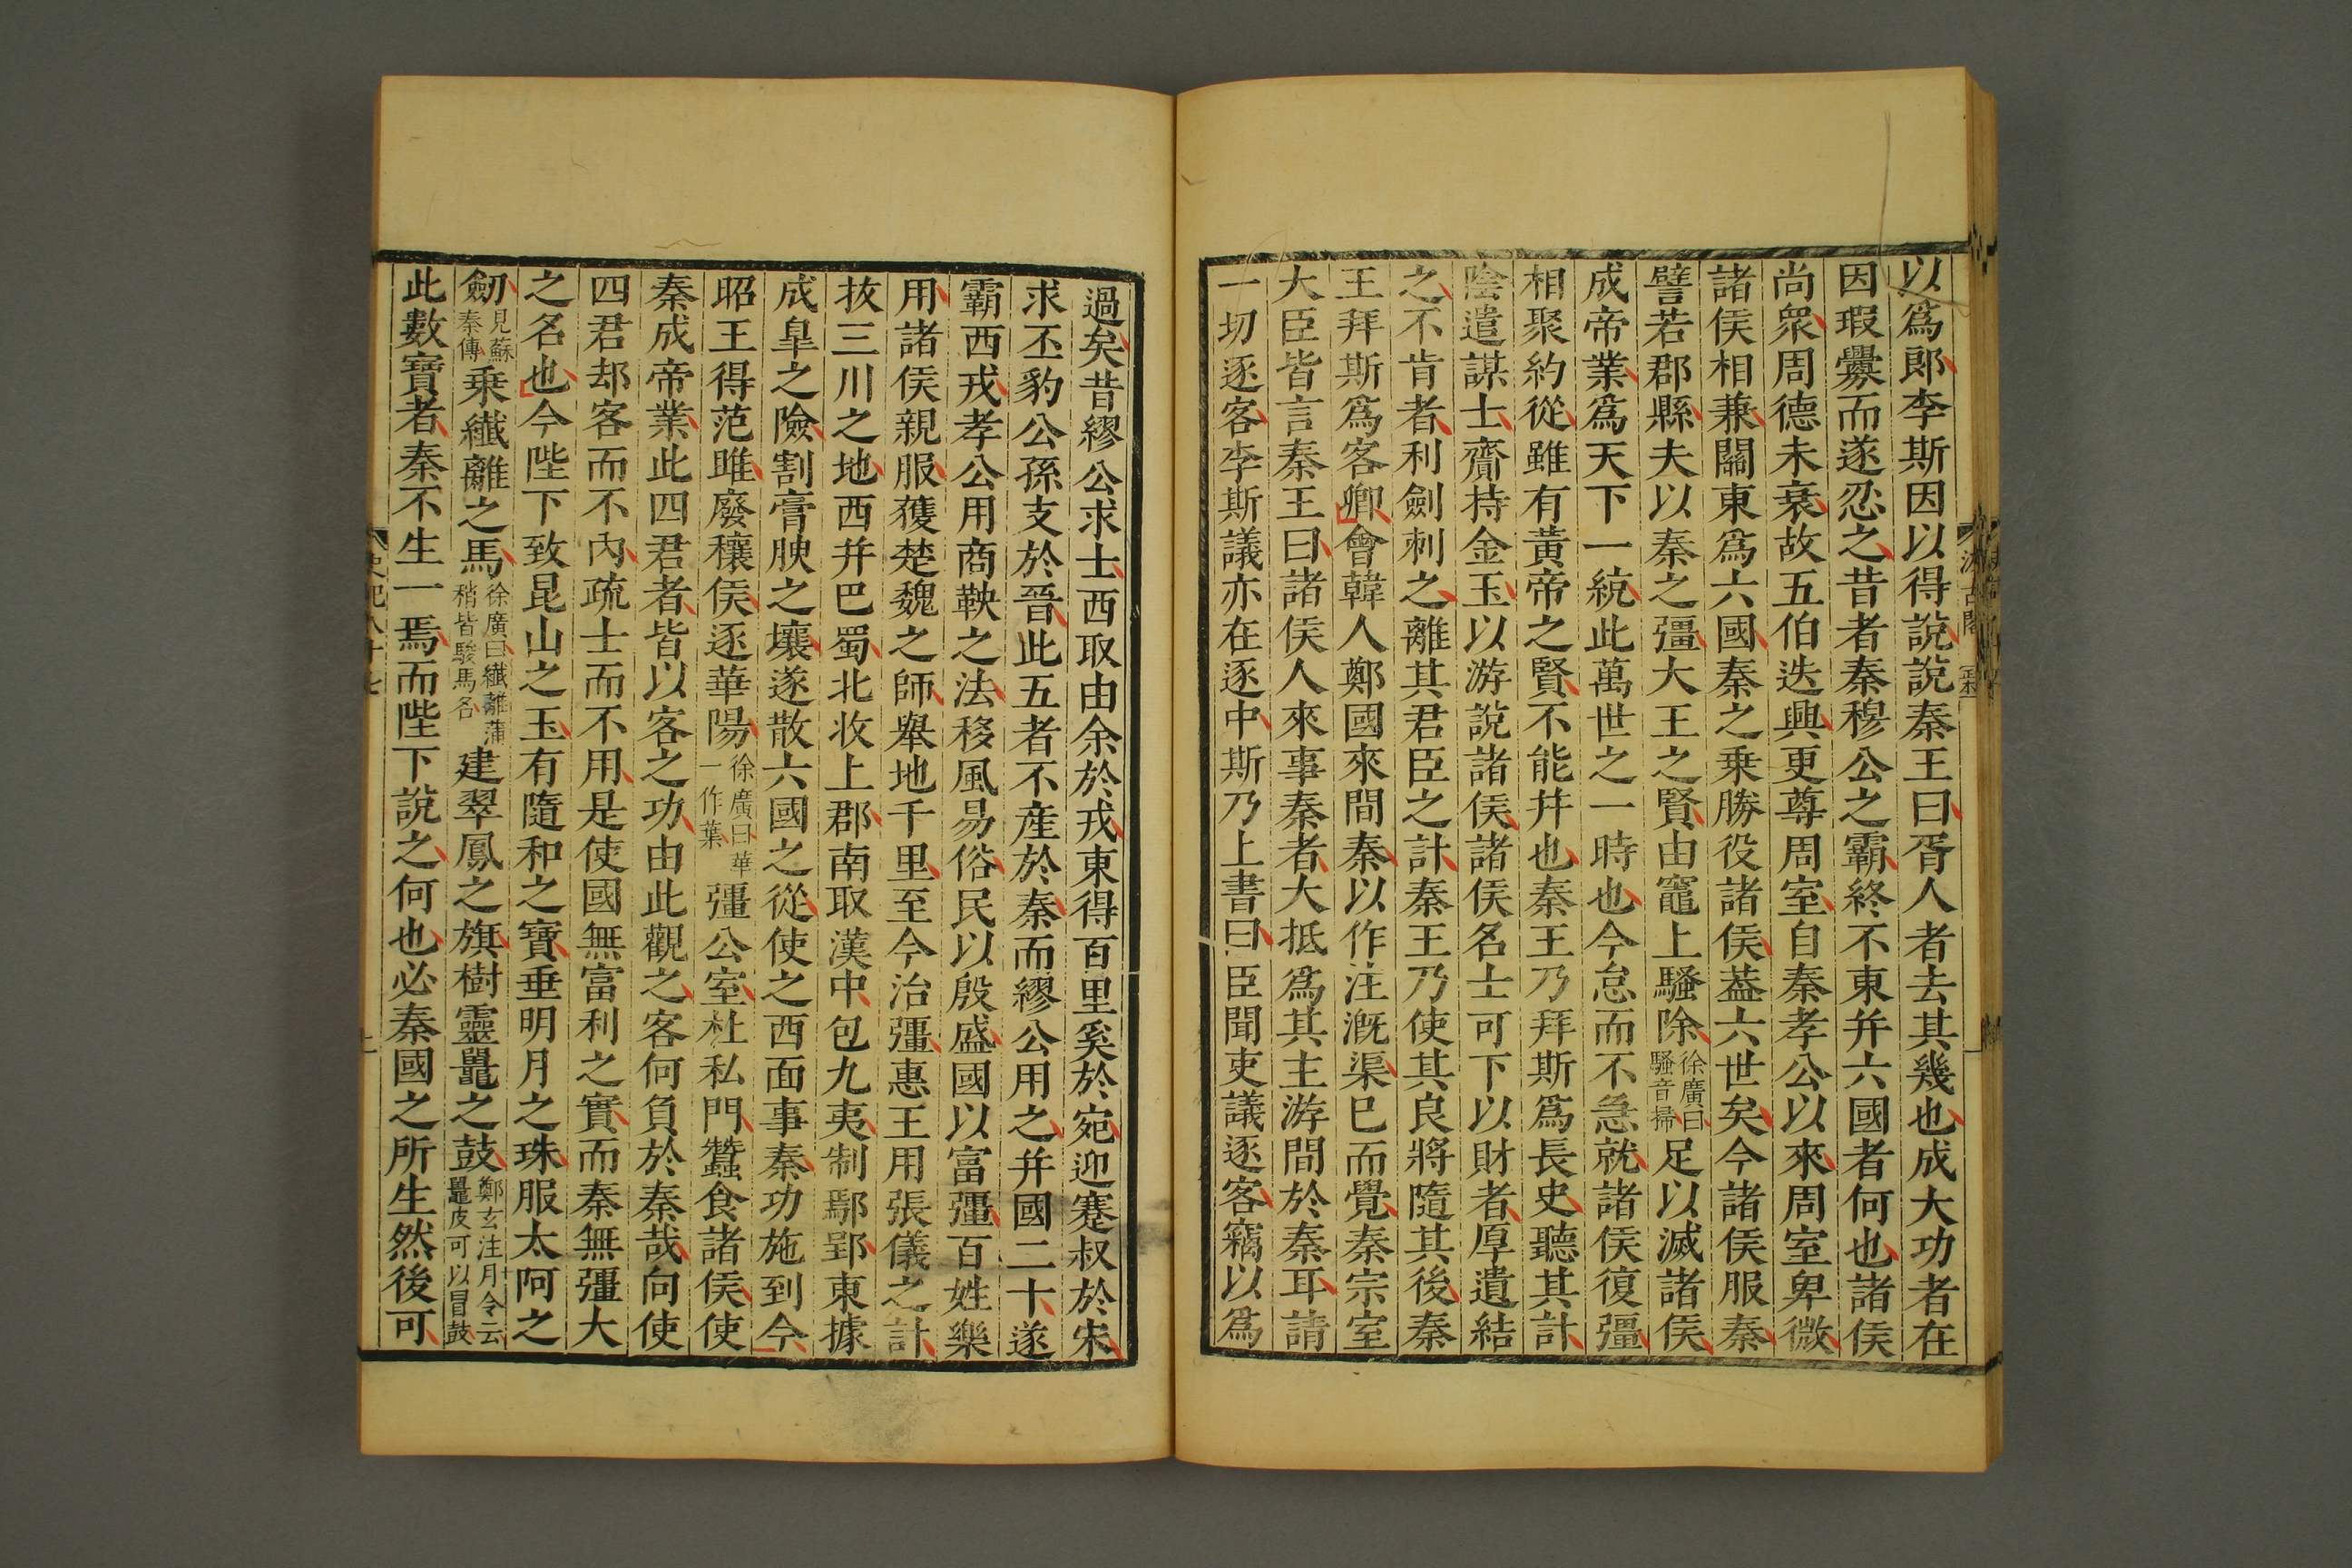 以爲郎李斯因以得說說秦王曰胥人者去其幾也成大功者在
因瑕釁而遂忍之昔者秦穆公之霸終不東幷六國者何也諸侯
尚衆周德未衰故五伯迭興更尊周室自秦孝公以來周室卑微
諸侯相兼關東爲六國秦之乗勝役諸侯葢六世矣今諸侯服秦
譬若郡縣夫以秦之彊大王之賢由竈上騷除徐廣曰騷音掃足以滅諸侯
成帝業爲天下一統此萬世之一時也今怠而不急就諸侯復彊
相聚約從雖有黃帝之賢不能幷也秦王乃拜斯爲長史聽其計
陰遣謀士齎持金玉以游說諸侯諸侯名士可下以財者厚遺結
之不肯者利劍刺之離其君臣之計秦王乃使其良將隨其後秦
王拜斯爲客卿會韓人鄭國來間秦以作注漑渠已而覺秦宗室
大臣皆言秦王曰諸侯人來事秦者大抵爲其主游間於秦耳請
一切逐客李斯議亦在逐中斯乃上書曰臣聞吏議逐客竊以爲
汲古閣
過矣昔繆公求士西取由余於戎東得百里奚於宛迎蹇叔於宋
求丕豹公孫支於晉此五者不産於秦而繆公用之幷國二十遂
霸西戎孝公用商鞅之法移風易俗民以殷盛國以富彊百姓樂
用諸侯親服獲楚魏之師舉地千里至今治彊惠王用張儀之計
拔三川之地西幷巴蜀北收上郡南取漢中包九夷制鄢郢東據
成皐之險割膏腴之壤遂散六國之從使之西面事秦功施到今
昭王得范雎廢穰侯逐華陽徐廣曰華一作葉彊公室杜私門蠶食諸侯使
秦成帝業此四君者皆以客之功由此觀之客何負於秦哉向使
四君却客而不內疏士而不用是使國無富利之實而秦無彊大
之名也今陛下致昆山之玉有隨和之寶垂明月之珠服太阿之
劒見蘇秦傳乗纖離之馬徐廣曰纖離蒲稍皆駿馬名建翠鳳之旗樹靈鼉之鼓鄭玄注月令云鼉皮可以冒鼓
此數寶者秦不生一焉而陛下說之何也必秦國之所生然後可
史記八十七